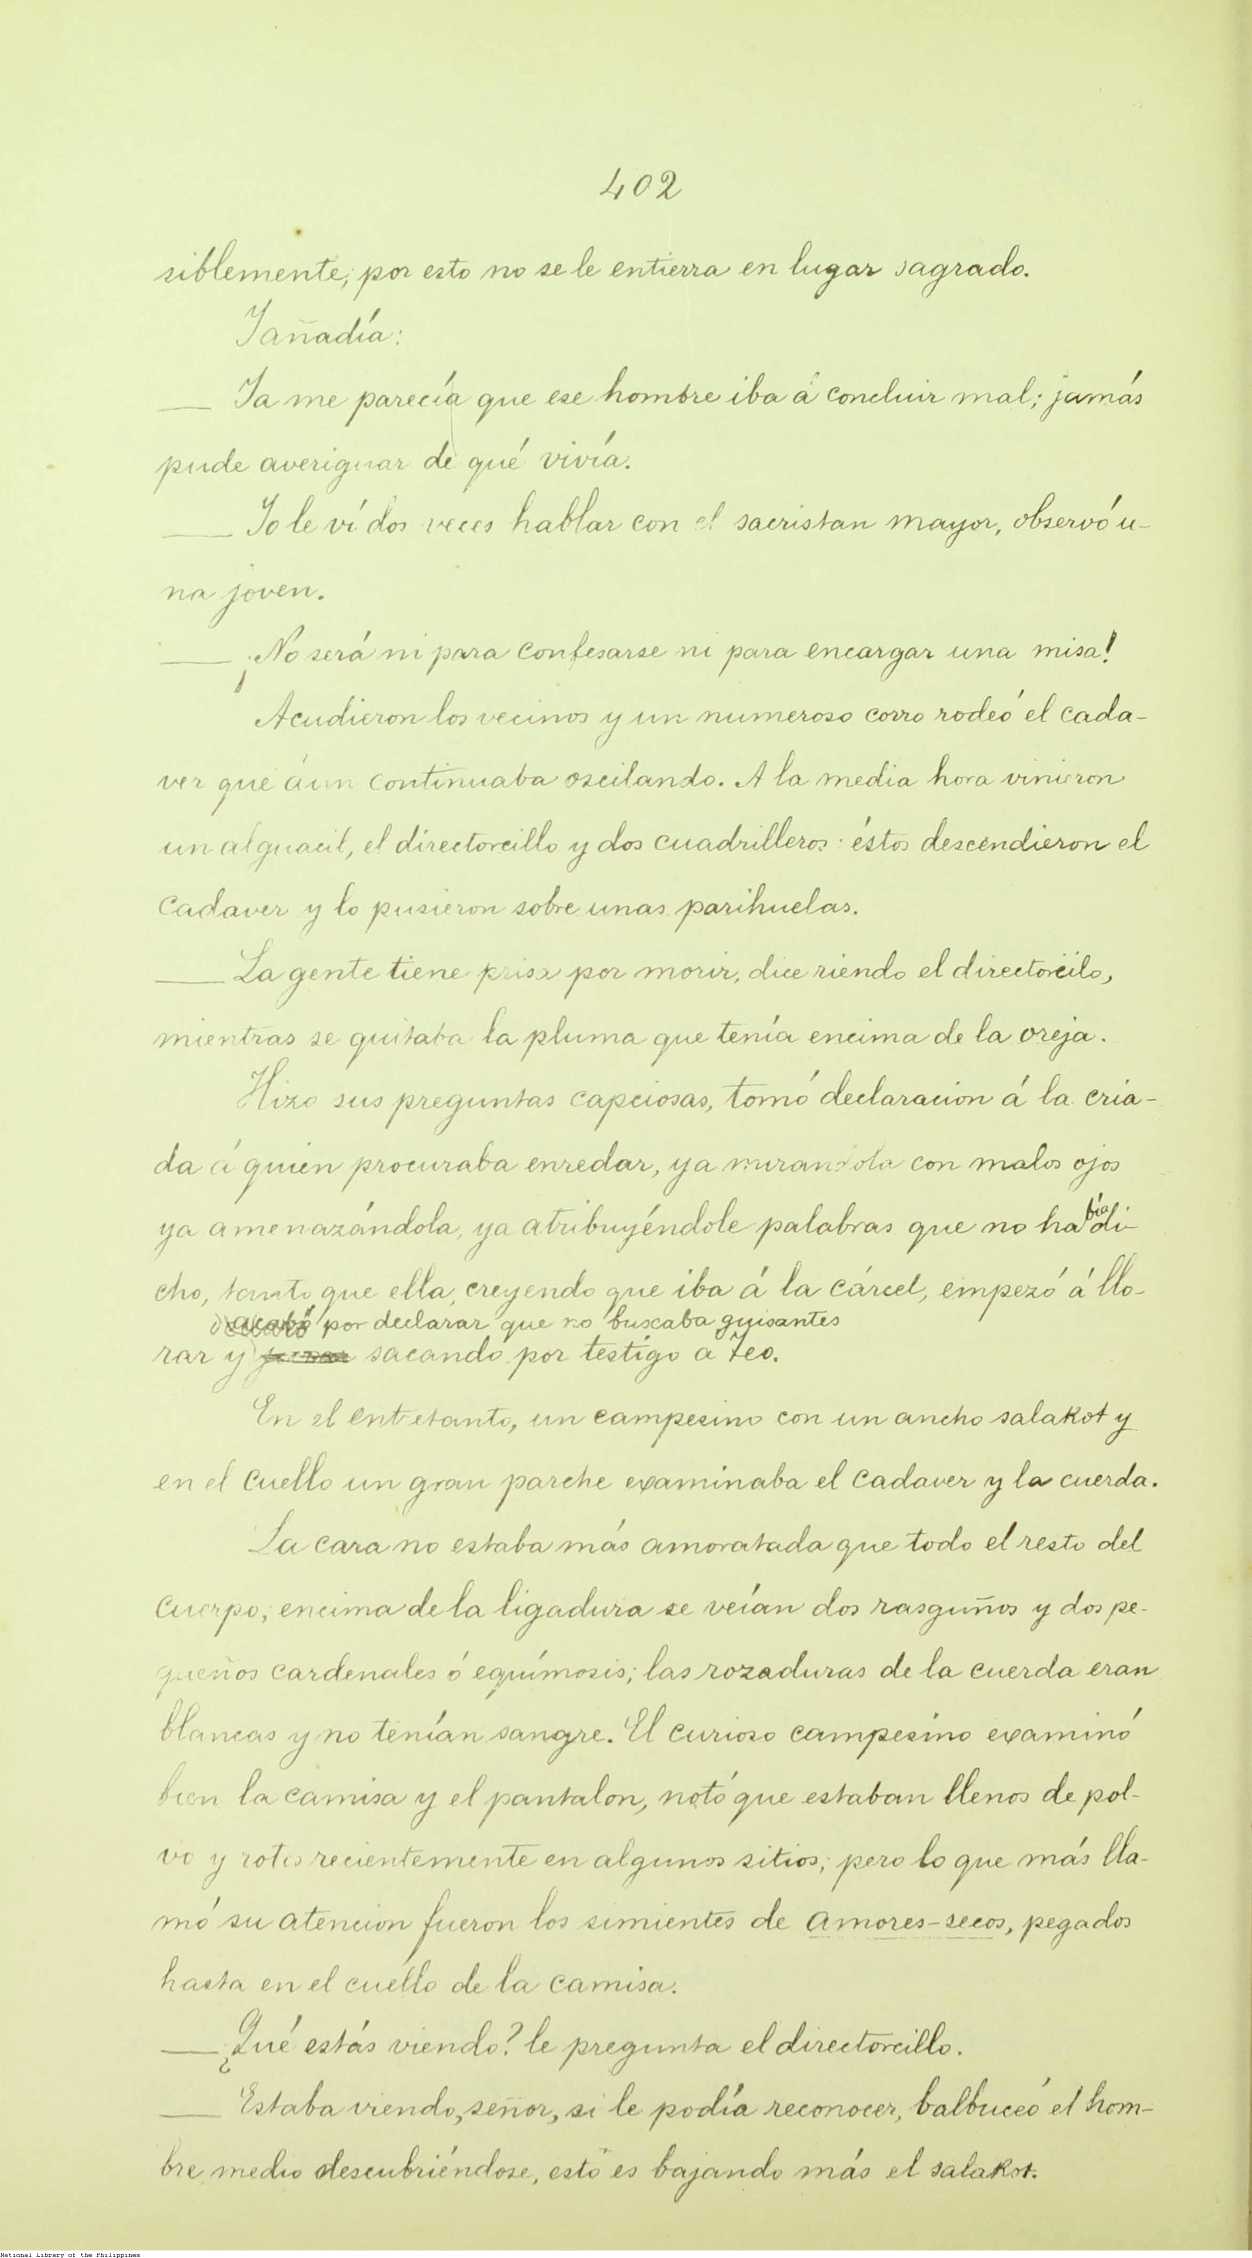 402
siblemente; por esto no se le entierra en lugar sagrado.
Y añadía:
— Ya me parecía que ese hombre iba á concluir mal; jamás
pude averiguar de qué vivía.
— Yo le ví dos veces hablar con el sacristan mayor, observó u-
na joven.
— ¡No será ni para confesarse ni para encargar una misa!
Acudieron los vecinos y un numeroso corro rodeó el cada-
ver que áun continuaba oscilando. A la media hora vinieron
un alguacil, el directorcillo y dos cuadrilleros: éstos descendieron el
cadaver y lo pusieron sobre unas parihuelas.
— La gente tiene prisa por morir, dice riendo el directorcilo,
mientras se quitaba la pluma que tenía encima de la oreja.
Hizo sus preguntas capciosas, tomó declaracion á la cria-
da á quien procuraba enredar, ya mirandola con malos ojos
ya amenazándola, ya atribuyéndole palabras que no había di-
cho, tanto que ella, creyendo que iba á la cárcel, empezó á llo-
acabó por declarar que no buscaba guisantes
rar y sacando por testigo a Teo.
En el entretanto, un campesino con un ancho salakot y
en el cuello un gran parche examinaba el cadaver y la cuerda.
La cara no estaba más amoratada que todo el resto del
cuerpo; encima de la ligadura se veían dos rasguños y dos pe-
queños cardenales ó equímosis; las rozaduras de la cuerda eran
blancas y no tenían sangre. El curioso campesino examinó
bien la camisa y el pantalon, notó que estaban llenos de pol-
vo y rotos recientemente en algunos sitios; pero lo que más lla-
mó su atencion fueron los simientes de amores-secos, pegados
hasta en el cuello de la camisa.
— ¿Qué estás viendo? le pregunta el directorcillo.
— Estaba viendo, señor, si le podía reconocer, balbuceó el hom-
bre medio descubriéndose, esto es bajando más el salakot.
National Library of the Philippines